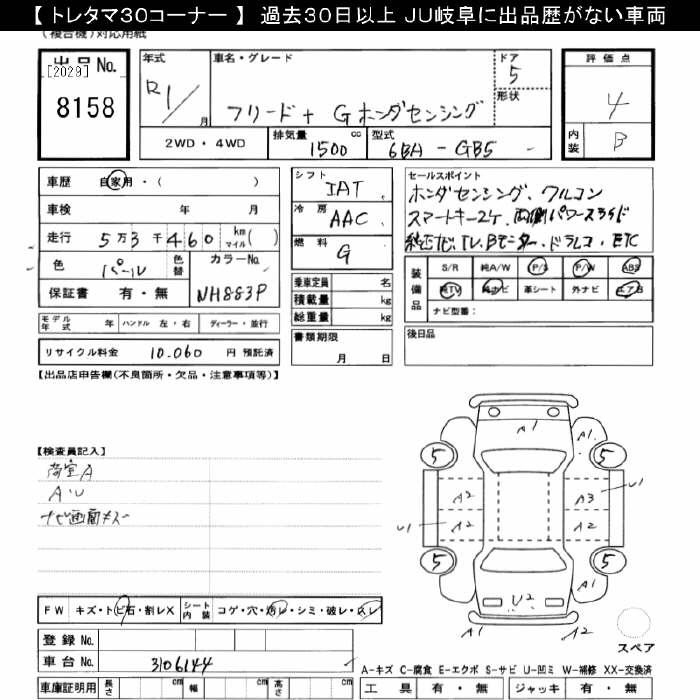 【 トレタマ30コーナー 】 過去30日以上 JU岐阜に出品歴がない車両
(複合機)対応用紙
出品 No.
[2029]
8158
年式
R1/
月
車名・グレード
フリード+ Gホンダセンシング
ドア
5
形状
評価点
4
内装
B
2WD・4WD
排気量
1500
cc
型式
6BA-GB5
車歴
自家用・( )
車検
年 月
走行
5万3千460
km
マイル
( )
色
パール
色替
カラーNo.
NH883P
保証書
有・無
シフト
IAT
冷房
AAC
燃料
G
セールスポイント
ホンダセンシング、ワルコン
スマートキー2ケ、両側パワースライド
純正ナビ、TV、Bモニター、ドラレコ、ETC
乗車定員
名
積載量
kg
総重量
kg
装備品
S/R
純A/W
P/S
P/W
ABS
純TV
純ナビ
革シート
外ナビ
エアB
ナビ型番:
モデル年式
年
ハンドル
左・右
ディーラー・並行
書類期限
月 日
後日品
リサイクル料金
10,060
円 預託済
【出品店申告欄(不良箇所・欠品・注意事項等)】
【検査員記入】
荷室A
A・U
ナビ画面キズ
A1
A1
5
5
A2
A3
U1
U1
A2
A2
5
5
A1
U2
A2
A2
スペア
FW
キズ・トビ石・割レX
シート内装
コゲ・穴・汚レ・シミ・破レ・スレ
登録 No.
車台 No.
3106144
A-キズ C-腐食 E-エクボ S-サビ U-凹ミ W-補修 XX-交換済
車庫証明用
長さ
cm
幅
cm
高さ
cm
工具
有・無
ジャッキ
有・無